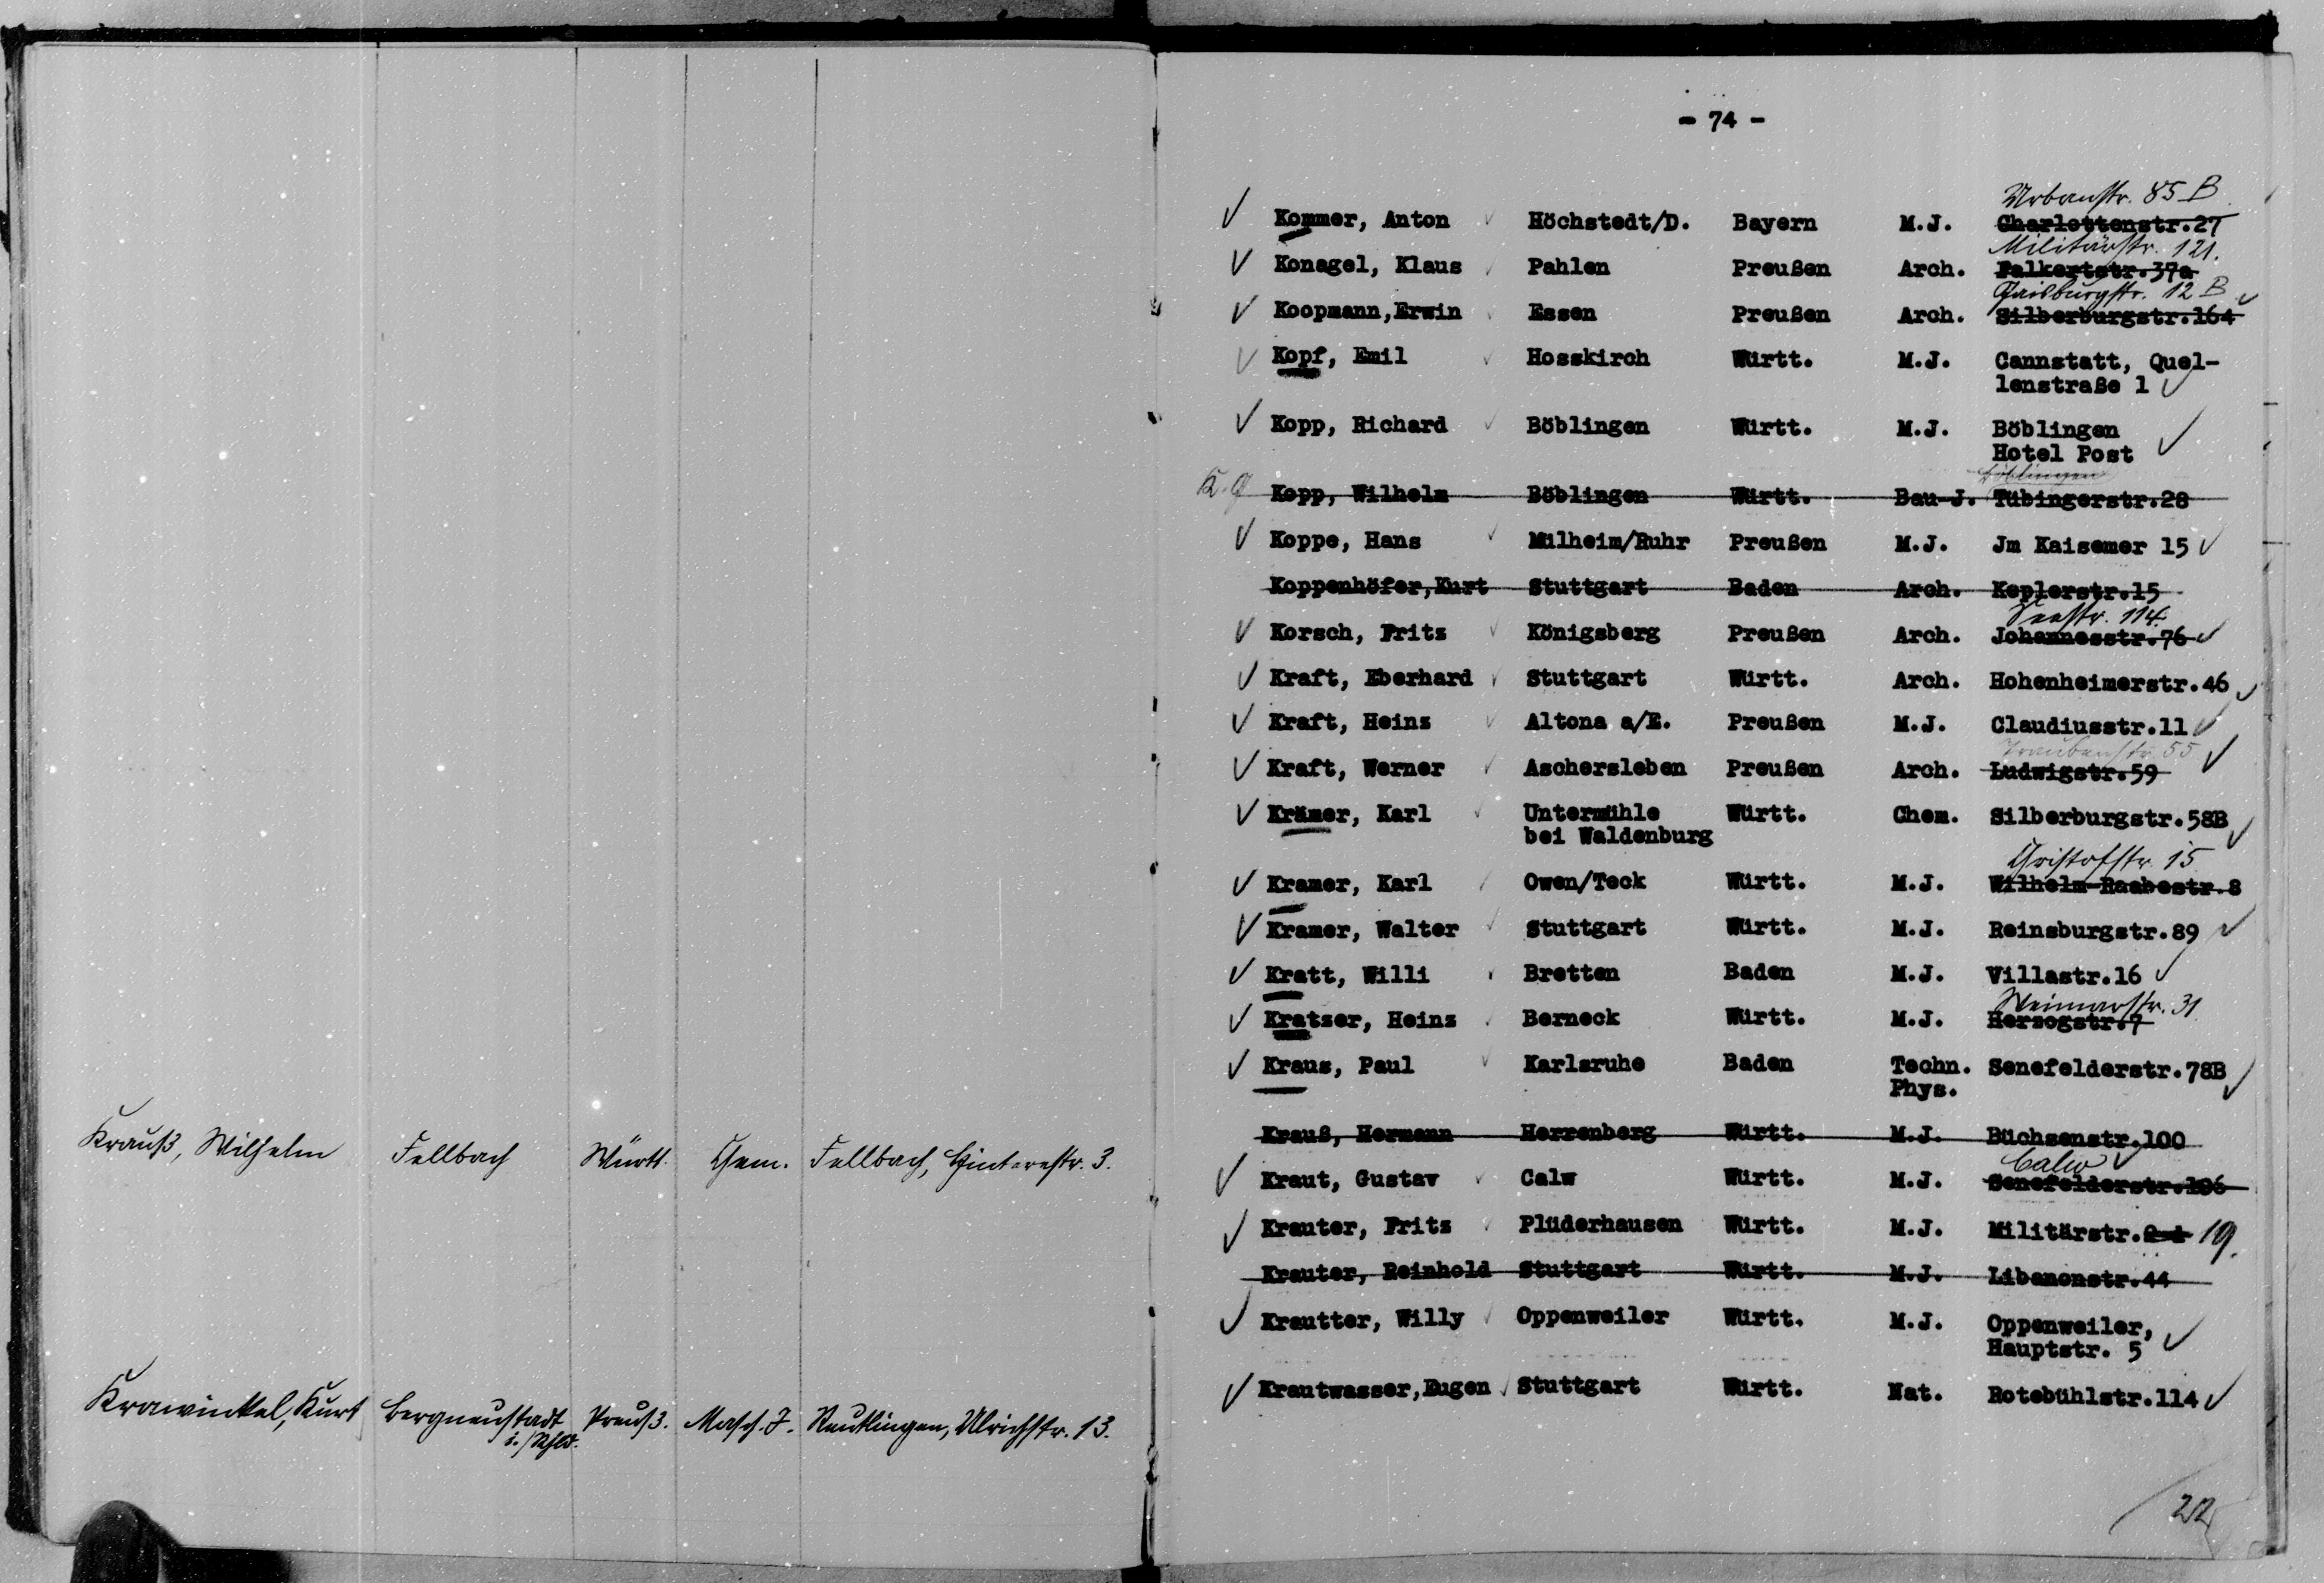 Krauß, Wilhelm Fellbach Württ. Chem. Fellbach, Hinterestr. 3.
Krawinkel, Kurt Bergneustadt Preuß. Masch. J. Reutlingen, Ulrichstr. 13.
- 74 -
Urbanstr. 85 B
Kommer, Anton Höchstedt/D. Bayern M.J. Charlottenstr.27
Militärstr. 121.
Konagel, Klaus Pahlen Preußen Arch. Falkertstr.37a
Gaisburgstr. 12 B
Koopmann,Erwin Essen Preußen Arch. Silberburgstr.164
Kopf, Emil Hosskirch Württ. M.J. Cannstatt, Quel-
lenstraße 1
Kopp, Richard Böblingen Württ. M.J. Böblingen
Hotel Post
Böblingen
Kopp, Wilhelm Böblingen Württ. Bau-J. Tübingerstr.28
Koppe, Hans Mülheim/Ruhr Preußen M.J. Jm Kaisemer 15
Koppenhöfer,Kurt Stuttgart Baden Arch. Keplerstr.15
Seestr. 114.
Korsch, Fritz Königsberg Preußen Arch. Johannesstr.76
Kraft, Eberhard Stuttgart Württ. Arch. Hohenheimerstr.46
Kraft, Heinz Altona a/E. Preußen M.J. Claudiusstr.11
Traubenstr 55
Kraft, Werner Aschersleben Preußen Arch. Ludwigstr.59
Krämer, Karl Untermühle Württ. Chem. Silberburgstr.58B
bei Waldenburg
Christofstr. 15
Kramer, Karl Owen/Teck Württ. M.J. Wilhelm-Raabestr.8
Kramer, Walter Stuttgart Württ. M.J. Reinsburgstr.89
Kratt, Willi Bretten Baden M.J. Villastr.16
Weimarstr. 31
Kratzer, Heinz Berneck Württ. M.J. Herzogstr.7
Kraus, Paul Karlsruhe Baden Techn. Senefelderstr.78B
Phys.
Krauß, Hermann Herrenberg Württ. M.J. Büchsenstr.100
Calw
Kraut, Gustav Calw Württ. M.J. Senefelderstr.106
Krauter, Fritz Plüderhausen Württ. M.J. Militärstr. 19.
Krauter, Reinhold Stuttgart Württ. M.J. Libanonstr.44
Krautter, Willy Oppenweiler Württ. M.J. Oppenweiler,
Hauptstr. 5
Krautwasser,Eugen Stuttgart Württ. Nat. Rotebühlstr.114